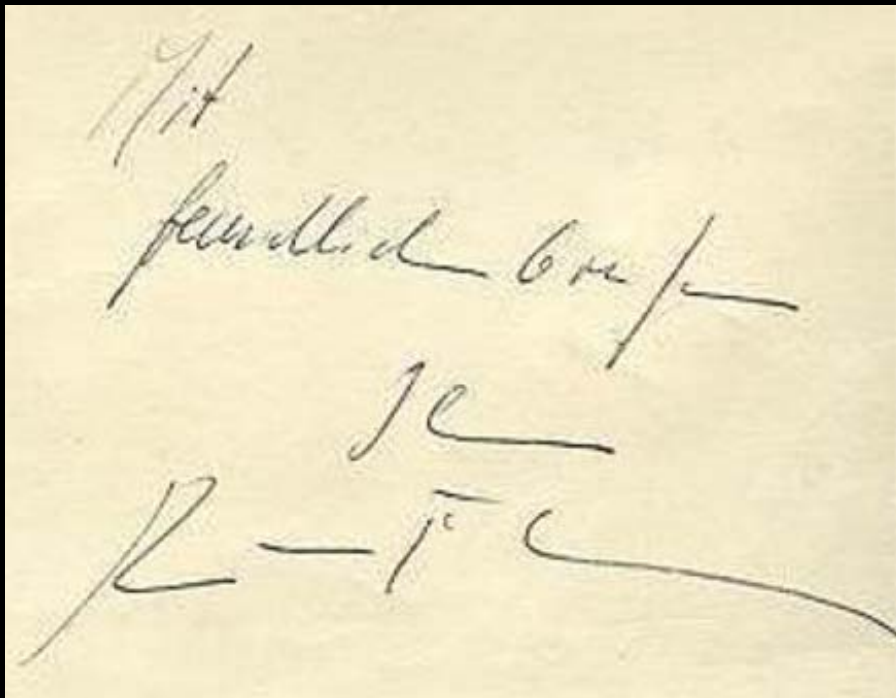 Mit
freundlichen Grüßen
Ihr